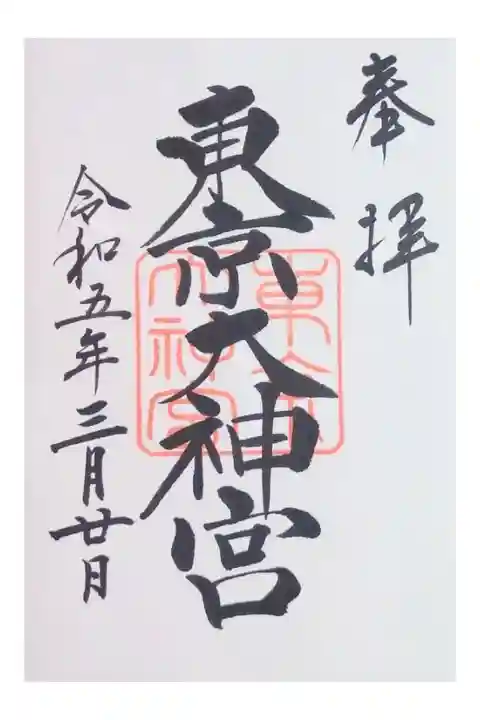 奉拝
東京大神宮
東京大神宮
令和五年三月廿日